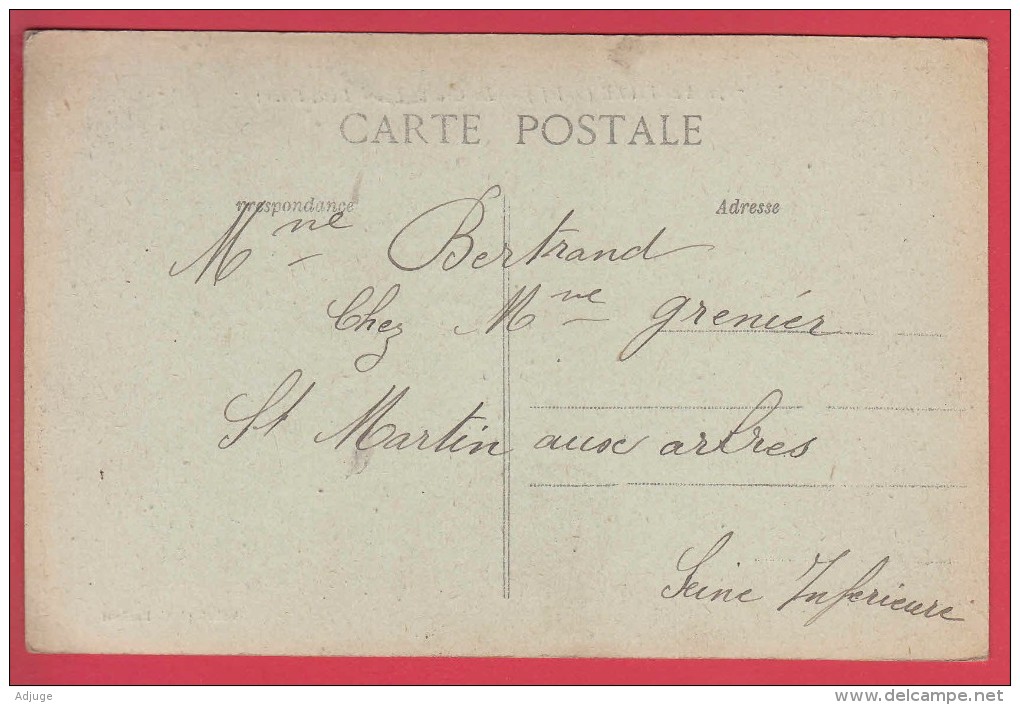 CARTE POSTALE
rrespondance
Adresse
Mme Bertrand
Chez Mme grenier
St Martin aux arbres
Seine Inferieure
Adjuge
www.delcampe.net